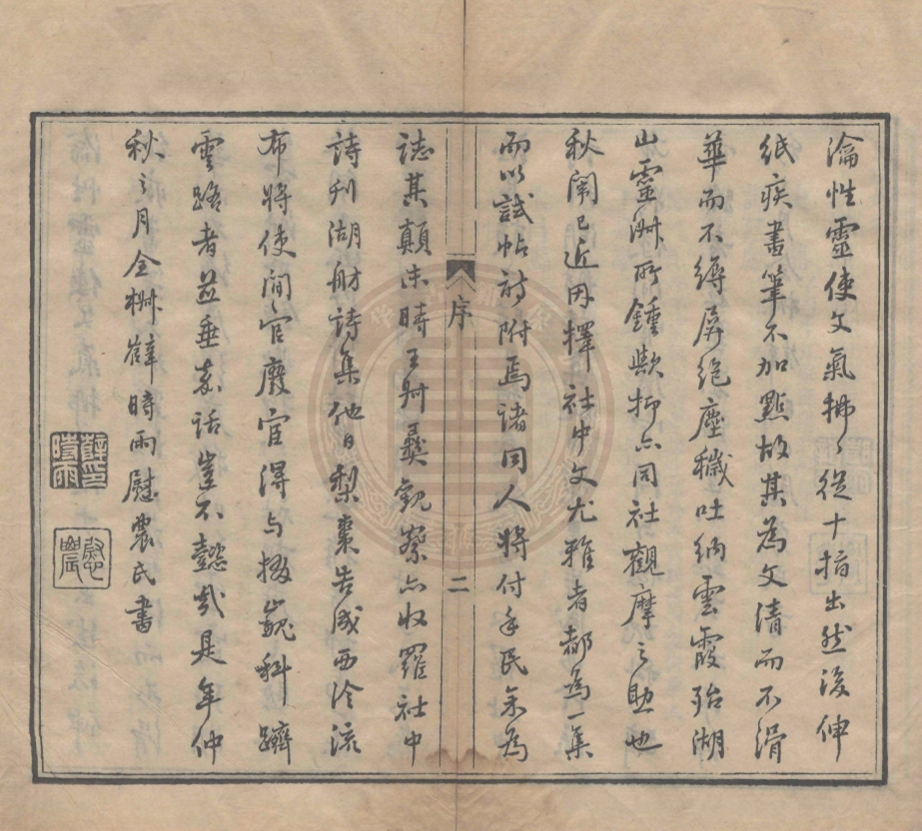 瀹性靈使文氣拂〻從十指出然後伸
紙疾書筆不加點故其為文清而不滑
華而不縟屏絕塵穢吐納雲霞殆湖
山靈淑所鍾歟抑亦同社觀摩之助也
秋闈已近因擇社中文尤雅者都為一集
而以試帖詩附焉諸同人將付手民余為
誌其顛末時王舟彝觀察亦收羅社中
詩刊湖舫詩集他日梨棗告成西泠流
布將使閒官廢宦得與掇巍科躋
雲路者並垂嘉話豈不懿哉是年仲
秋之月全椒薛時雨慰農氏書
序
二
薛印時雨
慰農